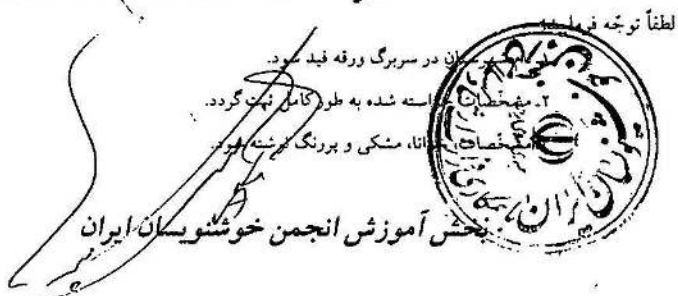 لطفاً توجّه فرمایید:
۱ـ نام شهرستان در سربرگ ورقه قید شود.
۲ـ مشخصات خواسته شده به طور کامل ثبت گردد.
مشخصات، خوانا، مشکی و پررنگ نوشته شود.
بخش آموزش انجمن خوشنویسان ایران